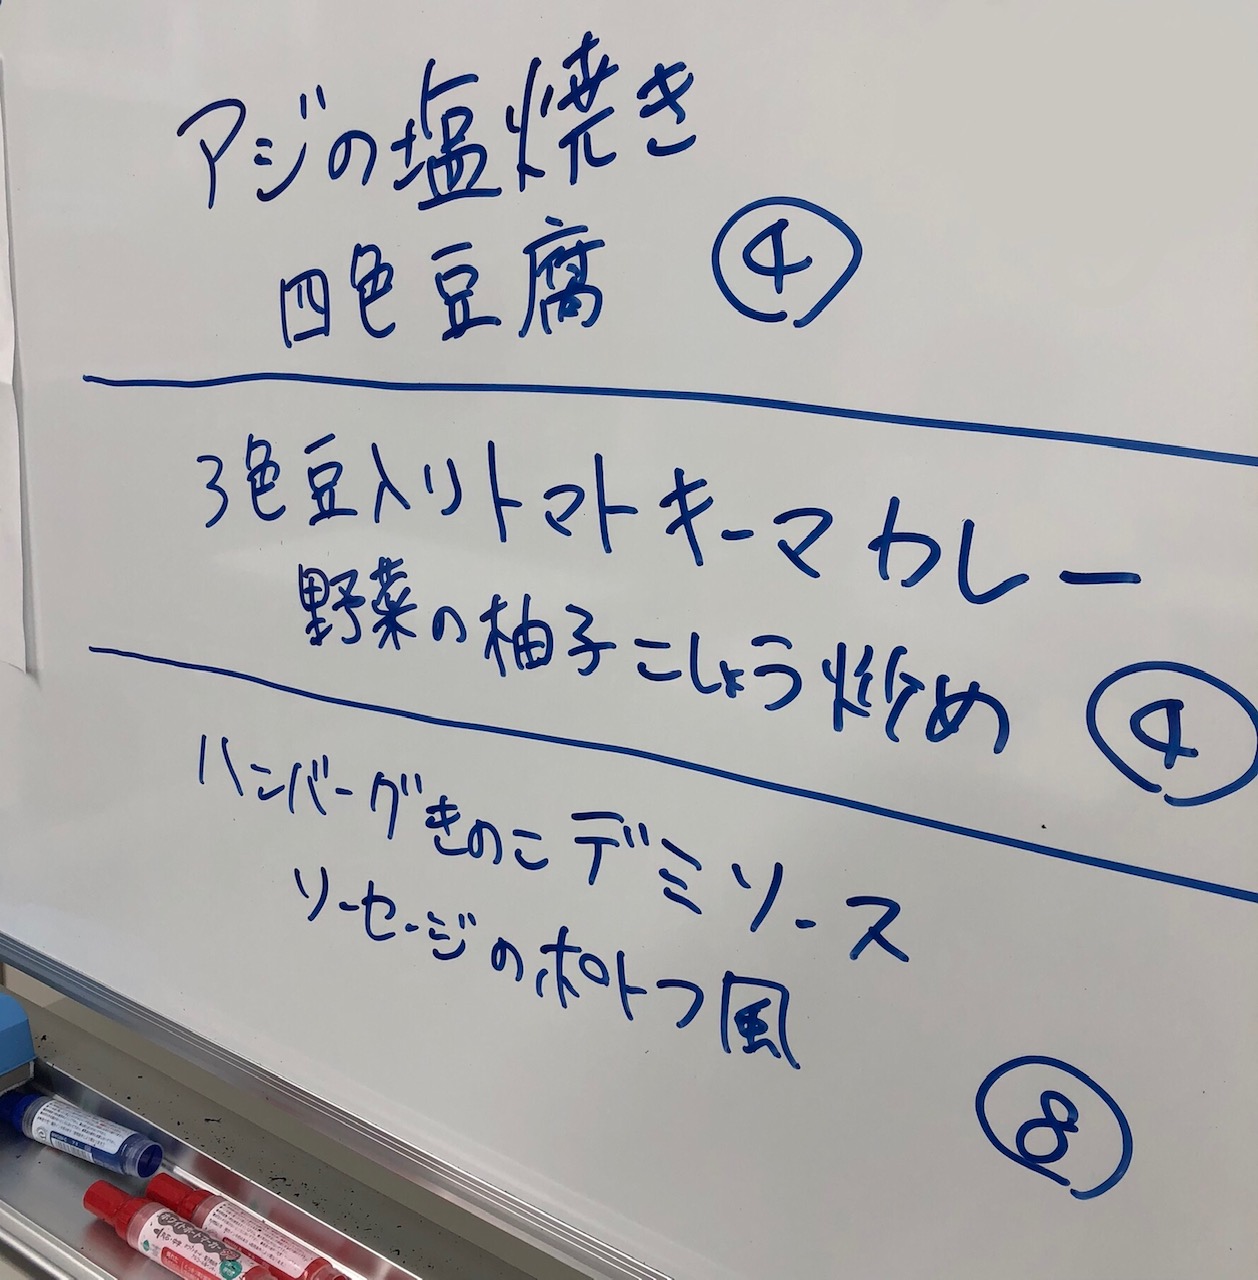 アジの塩焼き
四色豆腐 ④
3色豆入りトマトキーマカレー
野菜の柚子こしょう炒め ④
ハンバーグきのこデミソース
ソーセージのポトフ風
⑧
ホワイトボードマーカー